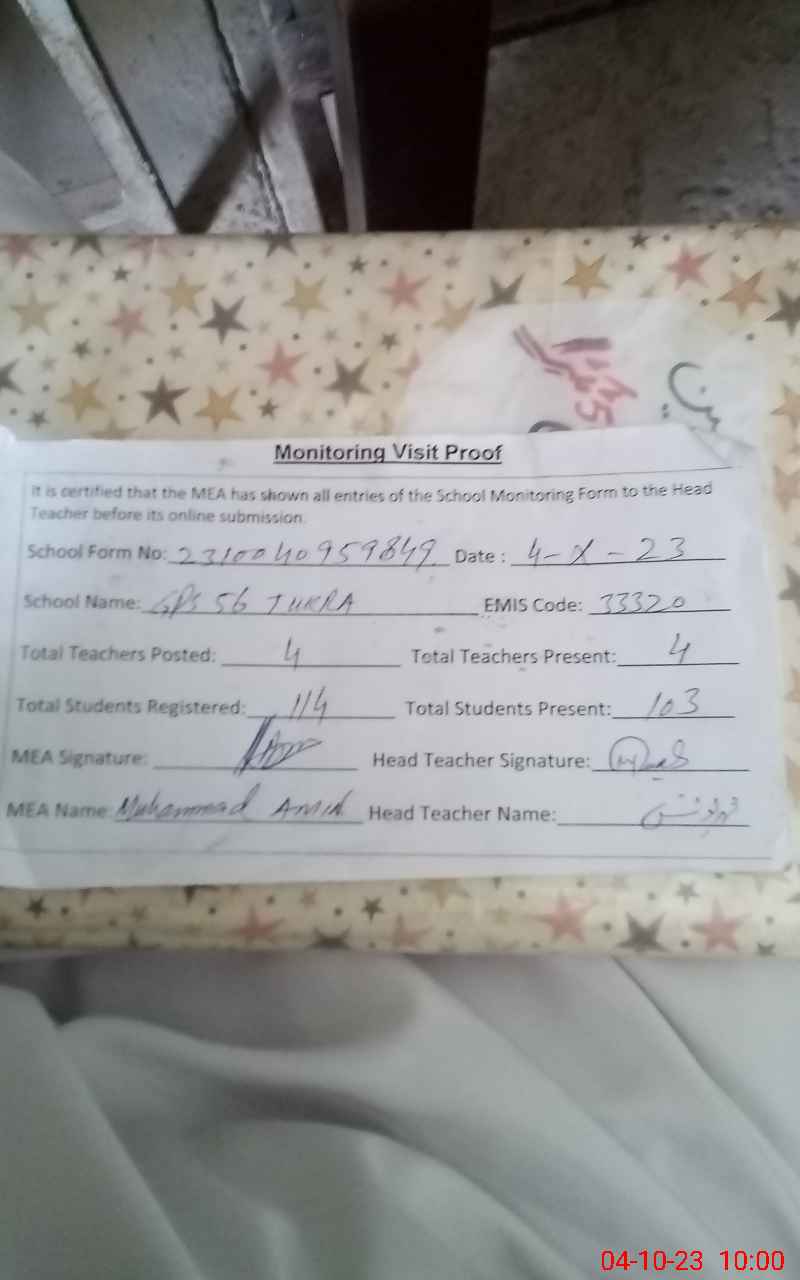 Monitoring Visit Proof
It is certified that the MEA has shown all entries of the School Monitoring Form to the Head
Teacher before its online submission.
School Form No: 2310040959849 Date : 4-X-23
School Name: GPS 56 TUKRA EMIS Code: 33320
Total Teachers Posted: 4 Total Teachers Present: 4
Total Students Registered: 114 Total Students Present: 103
MEA Signature: Head Teacher Signature:
MEA Name: Muhammad AMIN Head Teacher Name:
04-10-23 10:00